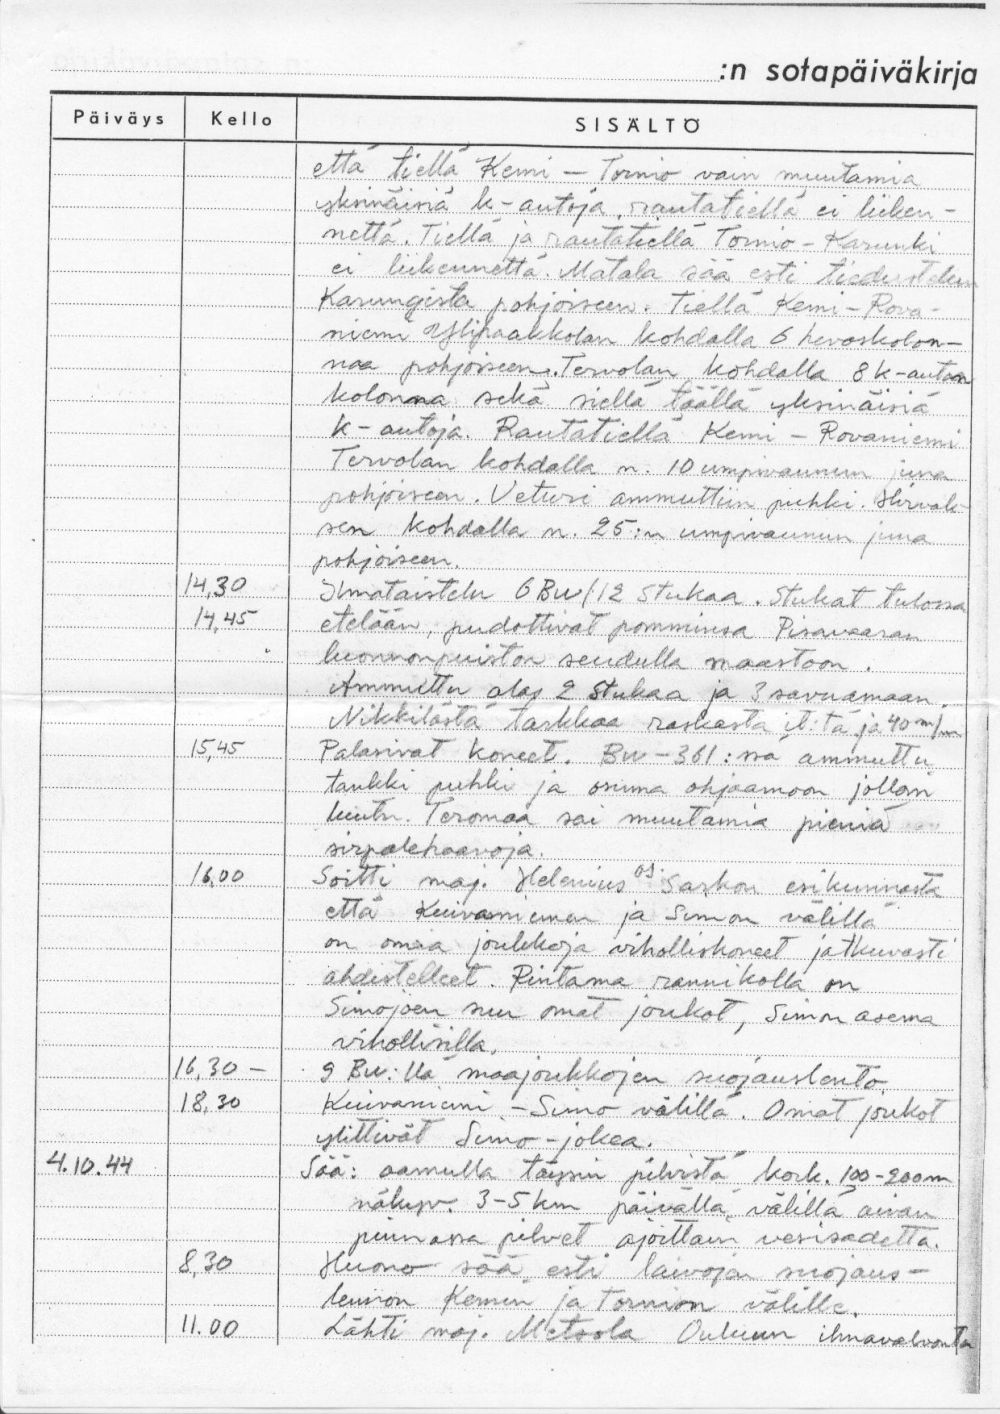 :n sotapäiväkirja
Päiväys Kello SISÄLTÖ
että tiellä Kemi — Tornio vain muutamia
yksinäisiä k-autoja, rautatiellä ei liiken-
nettä. Tiellä ja rautatiellä Tornio - Karunki
ei liikennettä. Matala sää esti tiedustelun
Karungista pohjoiseen. Tiellä Kemi - Rova-
niemi Ylipaakkolan kohdalla 6 hevoskolon-
naa pohjoiseen. Tervolan kohdalla 8 k-auton
kolonna sekä siellä täällä yksinäisiä
k-autoja. Rautatiellä Kemi - Rovaniemi
Tervolan kohdalla n. 10 umpivaunun juna
pohjoiseen. Veturi ammuttiin puhki. Hirvak-
sen kohdalla n. 25:n umpivaunun juna
pohjoiseen.
14,30 Ilmataistelu 6 Bw/12 Stukaa. Stukat tulossa
14,45 etelään, pudottivat pomminsa Pisavaaran
luonnonpuiston seudulla maastoon.
Ammuttu alas 2 Stukaa ja 3 savuamaan.
Nikkilästä tarkkaa raskasta it:tä ja 40 m/m
15,45 Palasivat koneet. Bw-361:ssä ammuttu
tankki puhki ja osuma ohjaamoon jolloin
luutn. Teromaa sai muutamia pieniä
sirpalehaavoja.
16,00 Soitti maj. Helenius os. Sarkon esikunnasta
että Kuivaniemen ja Simon välillä
on omia joukkoja viholliskoneet jatkuvasti
ahdistelleet. Rintama rannikolla on
Simojoen suu omat joukot, Simon asema
vihollisilla.
16,30 — 9 Bw:llä maajoukkojen suojauslento
18,30 Kuivaniemi - Simo välillä. Omat joukot
ylittivät Simo-jokea.
4.10.44 Sää: aamulla täysin pilvistä kork. 100-200 m
näkyv. 3-5 km päivällä, välillä aivan
pinnassa pilvet ajoittain vesisadetta.
8,30 Huono sää esti laivojen suojaus-
lennon Kemin ja Tornion välille.
11.00 Lähti maj. Metsola Ouluun ilmavalvonta